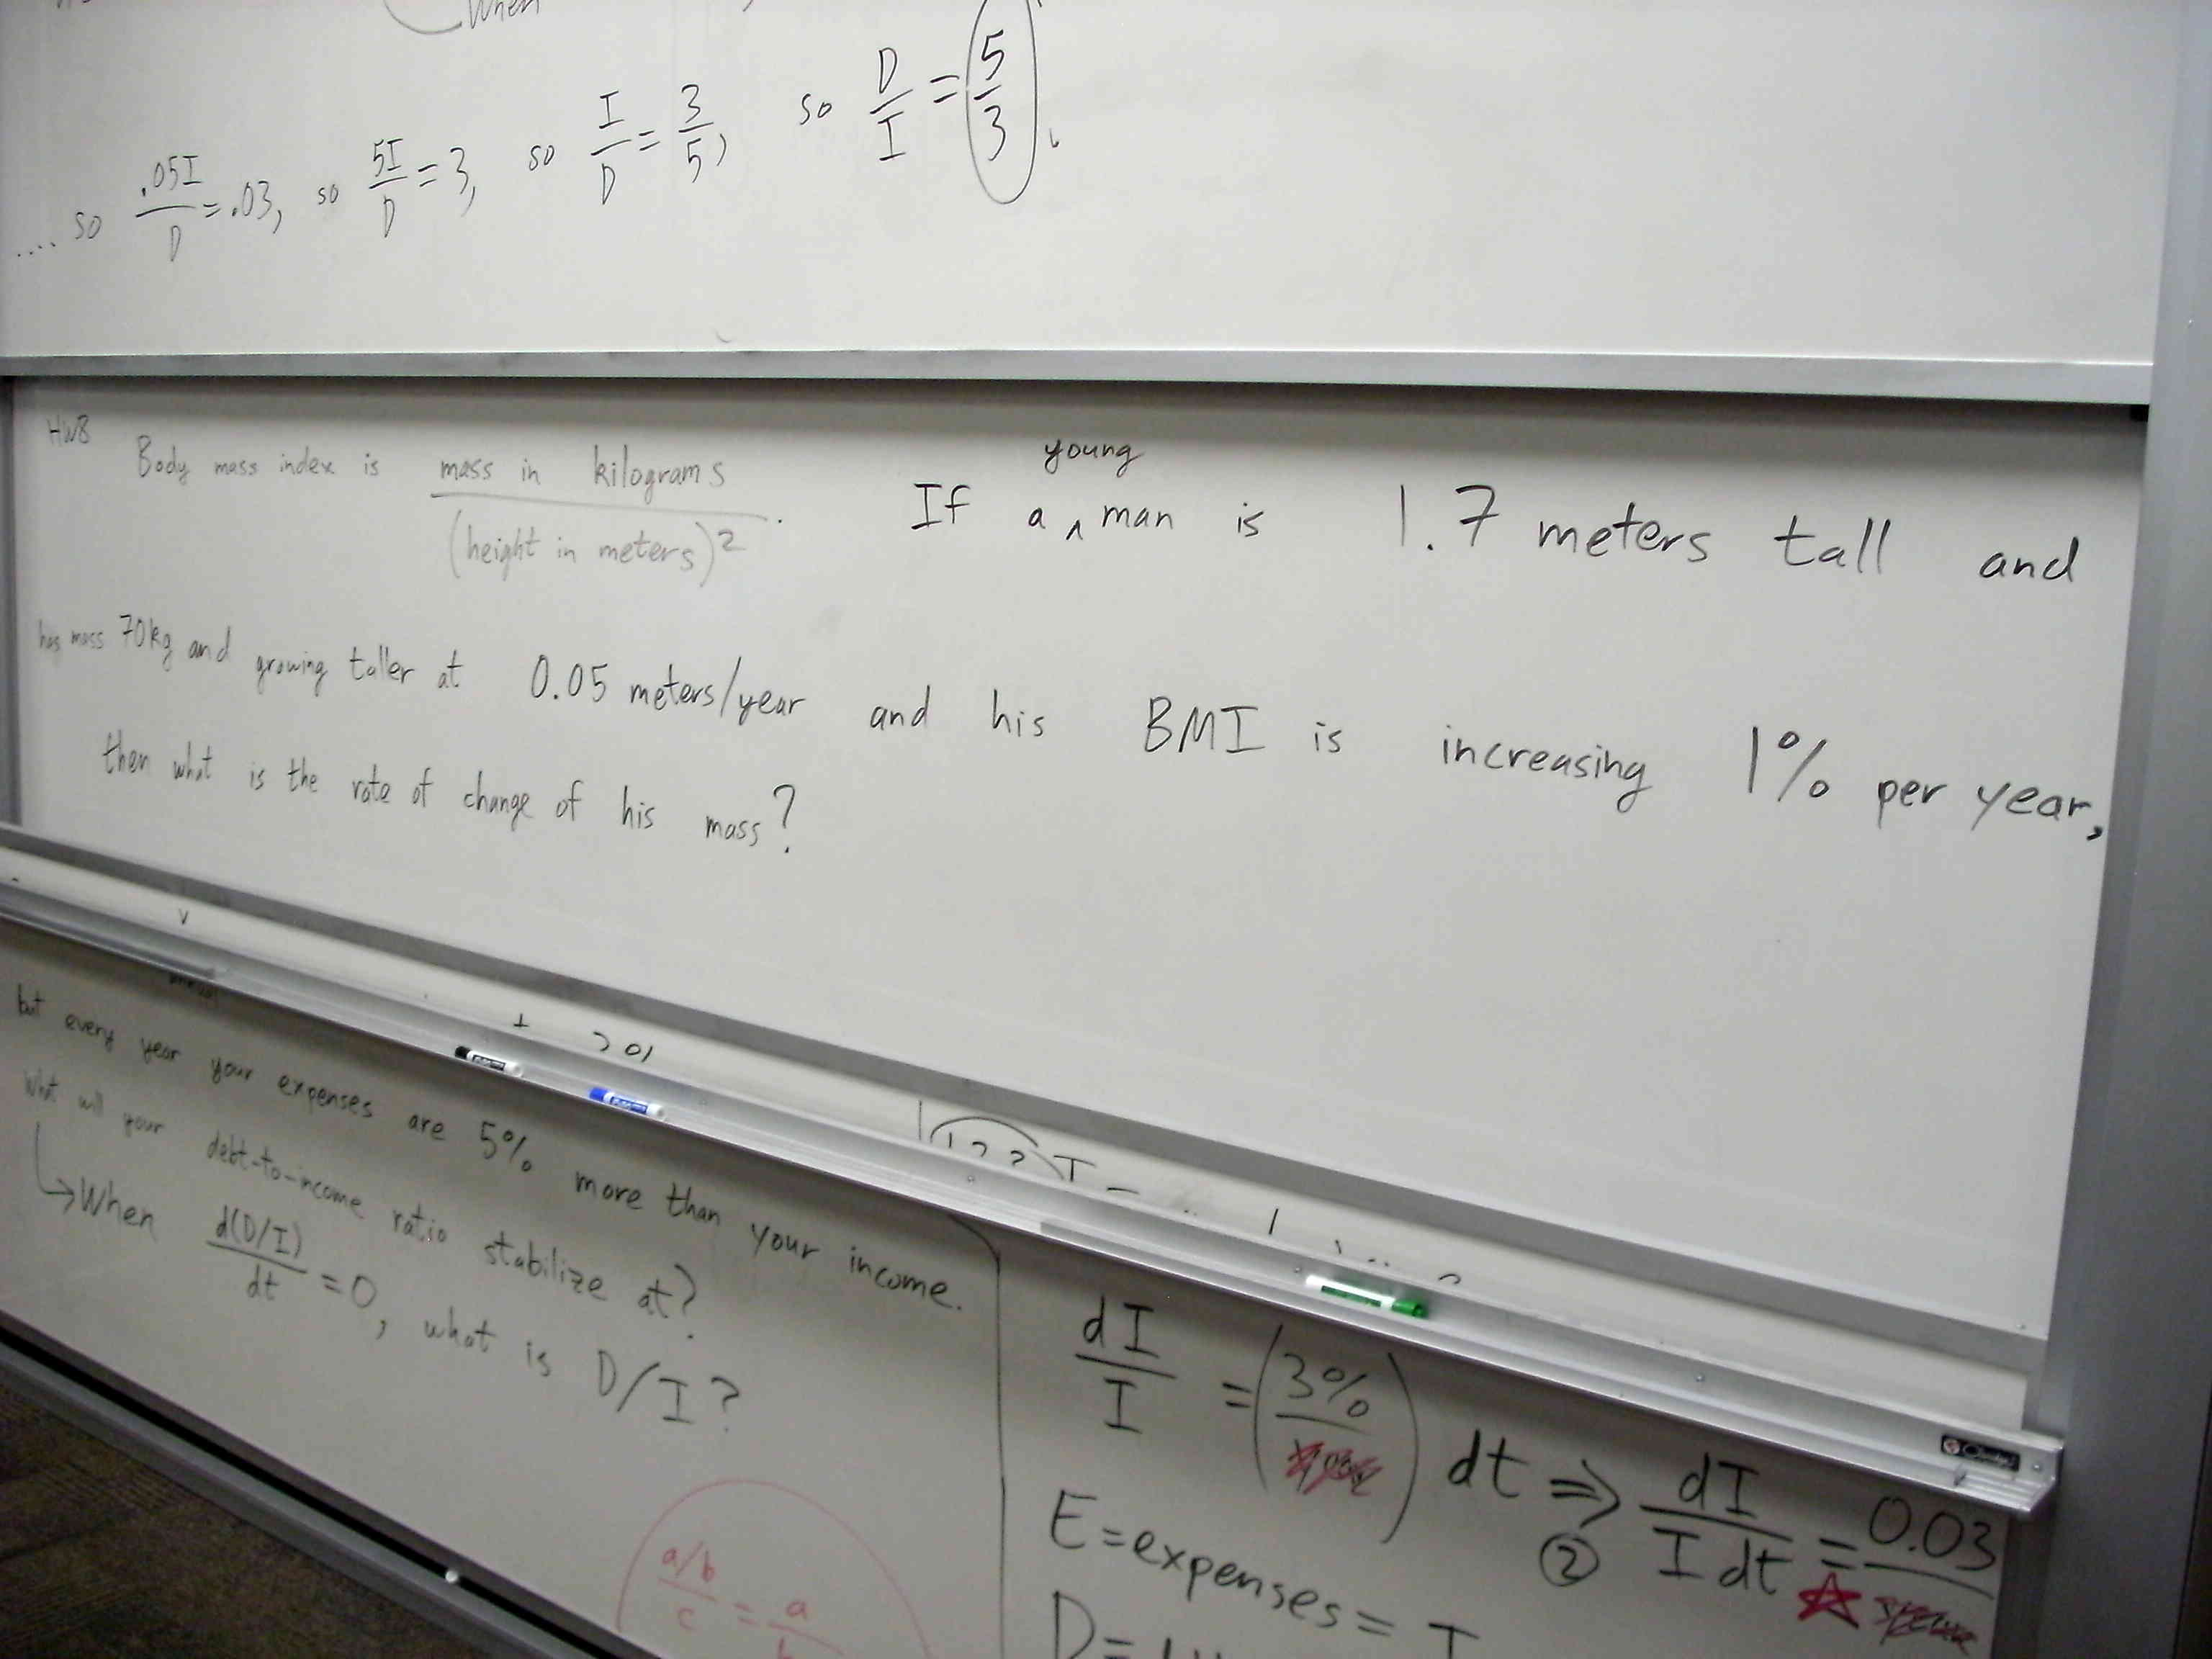 When
.... so .05I/D = .03, so 5I/D = 3, so I/D = 3/5, so D/I = 5/3.
HW8 Body mass index is mass in kilograms/(height in meters)². If a young man is 1.7 meters tall and
has mass 70kg and growing taller at 0.05 meters/year and his BMI is increasing 1% per year,
then what is the rate of change of his mass?
but every year your expenses are 5% more than your income.
What will your debt-to-income ratio stabilize at?
→When d(D/I)/dt = 0, what is D/I?
a/b/c = a
dI/I = (3%) dt ⇒ dI/I dt = 0.03
②
E = expenses = I
D =